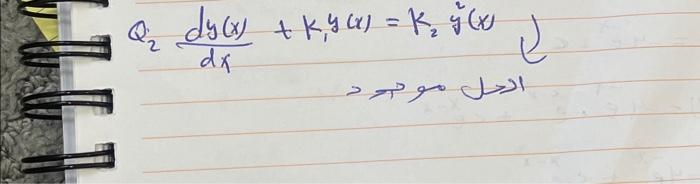 Q2 dy(x)/dx + K₁y(x) = K₂ y²(x)
الحل موجود